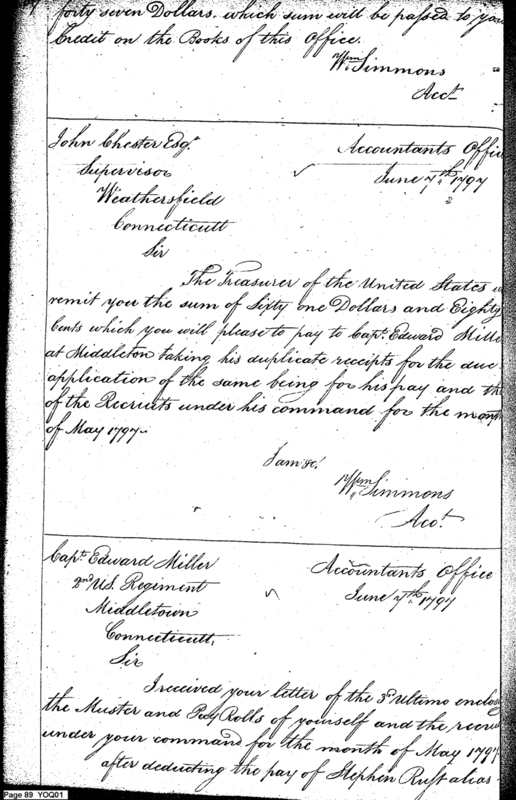 forty seven Dollars. which sum will be passed to you
Credit on the Books of this Office.
Wm Simmons
Acct
John Chester Esqr
Accountants Offic
Supervisor
June 7th 1797
Weathersfield
Connecticutt
Sir
The Treasurer of the United States w
remit you the sum of Sixty one Dollars and Eighty
Cents which you will please to pay to Capt. Edward Mille
at Middleton taking his duplicate receipts for the due
application of the same being for his pay and th
of the Recriuts under his command for the month
of May 1797.
I am &c.
Wm Simmons
Acct.
Capt. Edward Miller
Accountants Office
2nd U.S. Regiment
June 7th. 1797
Middletown
Connecticutt,
Sir
I received your letter of the 3d Ultimo enclos
the Muster and Pay Rolls of yourself and the recru
under your command for the month of May 1797
after deducting the pay of Stephen Rust alias
Page 89 YOQ01